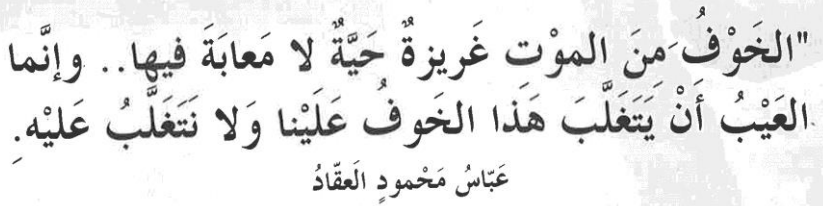 "الخَوْفُ مِنَ الموْت غَريزةٌ حَيَّةٌ لا مَعابَةَ فيها.. وإنَّما
العَيْبُ أَنْ يَتَغَلَّبَ هَذا الخَوفُ عَلَيْنا وَلا نَتَغَلَّبُ عَليْهِ.
عَبّاسُ مَحْمودٍ العقّادُ